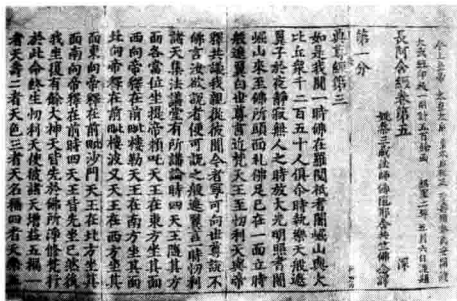 長阿含經卷第五　　深
姚秦三藏法師佛陀耶舍共竺佛念譯
第一分
典尊經第三
如是我聞一時佛在羅閱祇耆闍崛山與大
比丘眾千二百五十人俱介時執樂天般遮
翼子於夜靜寂無人之時放大光明照耆闍
崛山來至佛所頭面礼佛足已在一面立時
般遮翼白世尊言近梵天王至忉利天與帝
釋共議我親從彼聞今者寧可向世尊說不
佛言汝欲說者便可說之般遮翼言一時忉利
諸天集法講堂有所講論時四天王隨其方
面各當位坐提帝賴吒天王在東方坐其面
西向帝釋在前毗樓勒天王在南方坐其面
北向帝釋在前毗樓波叉天王在西方坐其
面東向帝釋在前毗沙門天王在北方坐其
面南向帝釋在前時四天王皆先坐已然後
我坐復有餘大神天皆先於佛所淨修梵行
於此命終生忉利天使彼諸天增益五福一
者天壽二者天色三者天名稱四者天樂